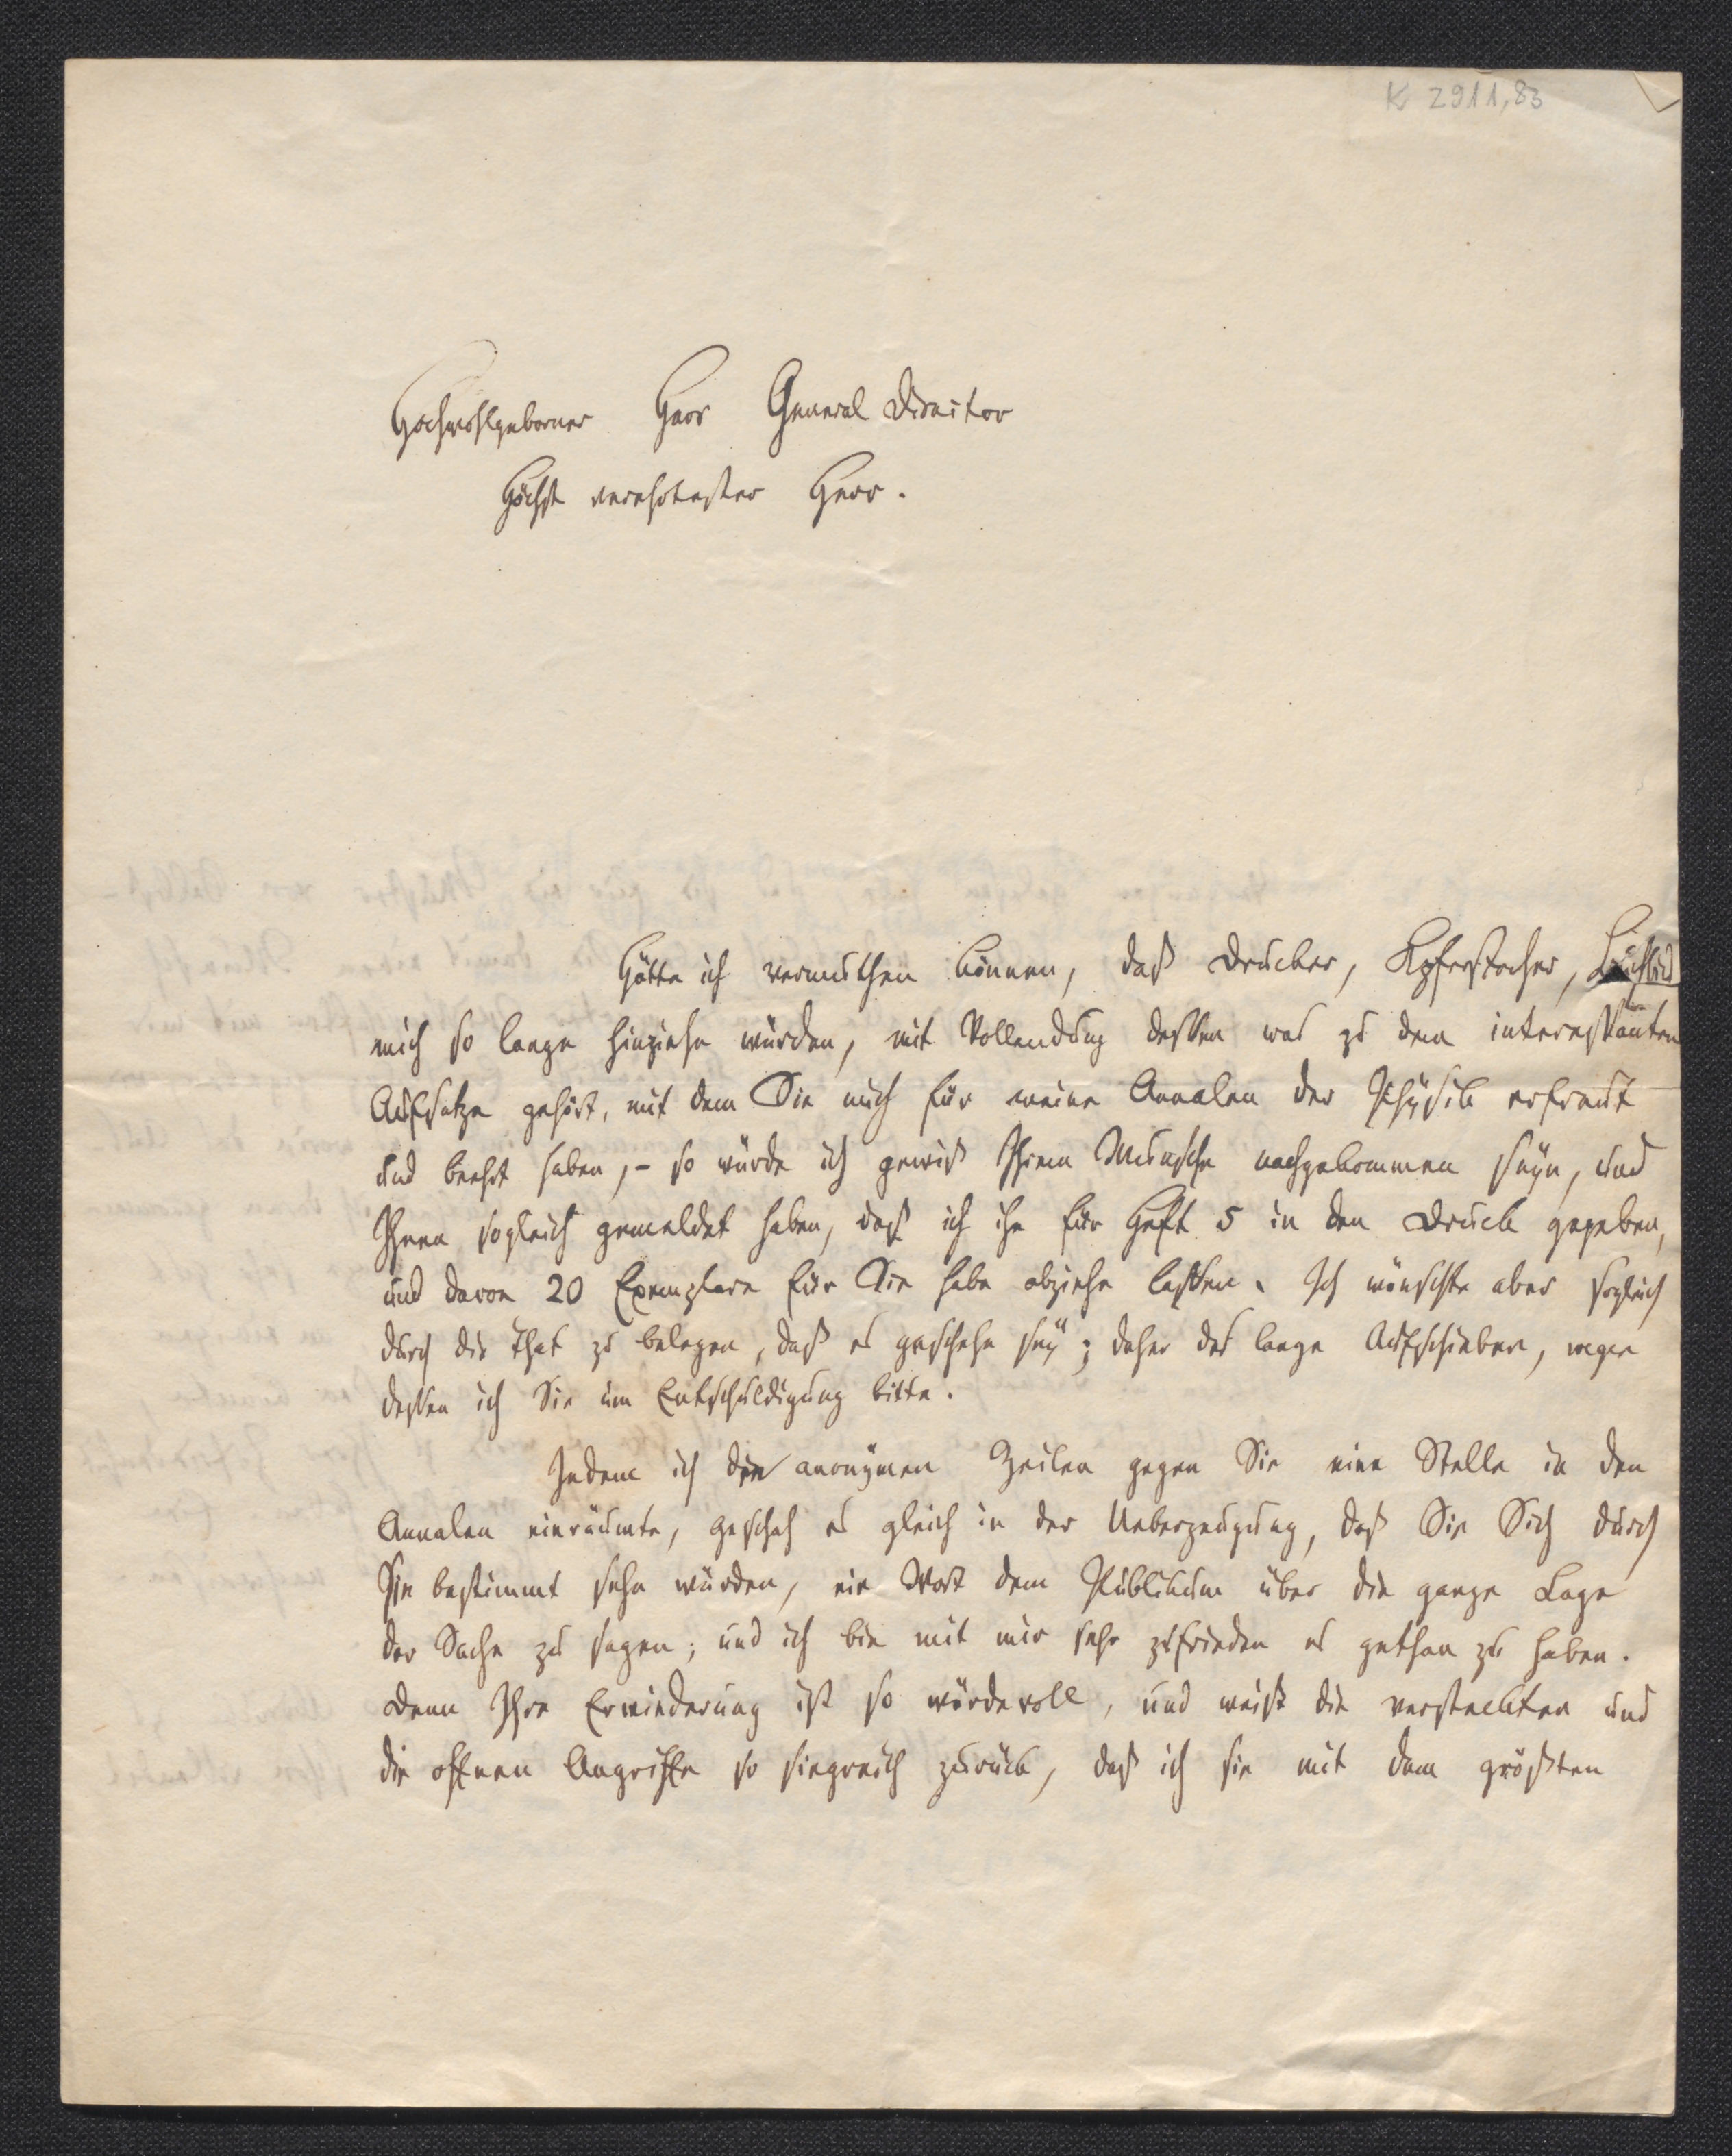 K 2911,83
Hochwohlgeborner Herr General Director
Höchst verehrtester Herr.
Hätte ich vermuthen können, daß Drucker, Kpferstecher,
mich so lange hinziehn würden, mit Vollendung dessen was zu dem interessanten
Aufsatze gehört, mit dem Sie mich für meine Annalen der Physik erfreut
und beehrt haben, – so würde ich gewiß Ihrem Wunsche nachgekommen seyn, und
Ihnen sogleich gemeldet haben, daß ich ihn für Heft 5 in den Druck gegeben,
und davon 20 Exemplare für Sie habe abziehn lassen. Ich wünschte aber sogleich
durch die That zu belegen, daß es geschehn sey; daher das lange Aufschieben, wegen
dessen ich Sie um Entschuldigung bitte.
Indem ich den anonymen Zeilen gegen Sie eine Stelle in den
Annalen einräumte, geschah es gleich in der Ueberzeugung, daß Sie Sich durch
Sie bestimmt sehn würden, ein Wort dem Publikum über die ganze Lage
der Sache zu sagen; und ich bin mit mir sehr zufrieden es gethan zu haben.
Denn Ihre Erwiederung ist so würdevoll, und weist die versteckten und
die offnen Angriffe so siegreich zurück, daß ich sie mit dem größten